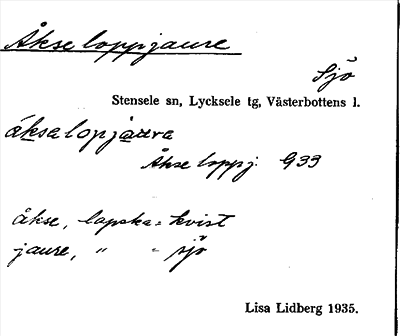 Åkseloppjaure
Sjö
Stensele sn, Lycksele tg, Västerbottens l.
áksalopjàura
Åkseloppj. G33
åkse, lapska = kvist
jaure, " = sjö
Lisa Lidberg 1935.